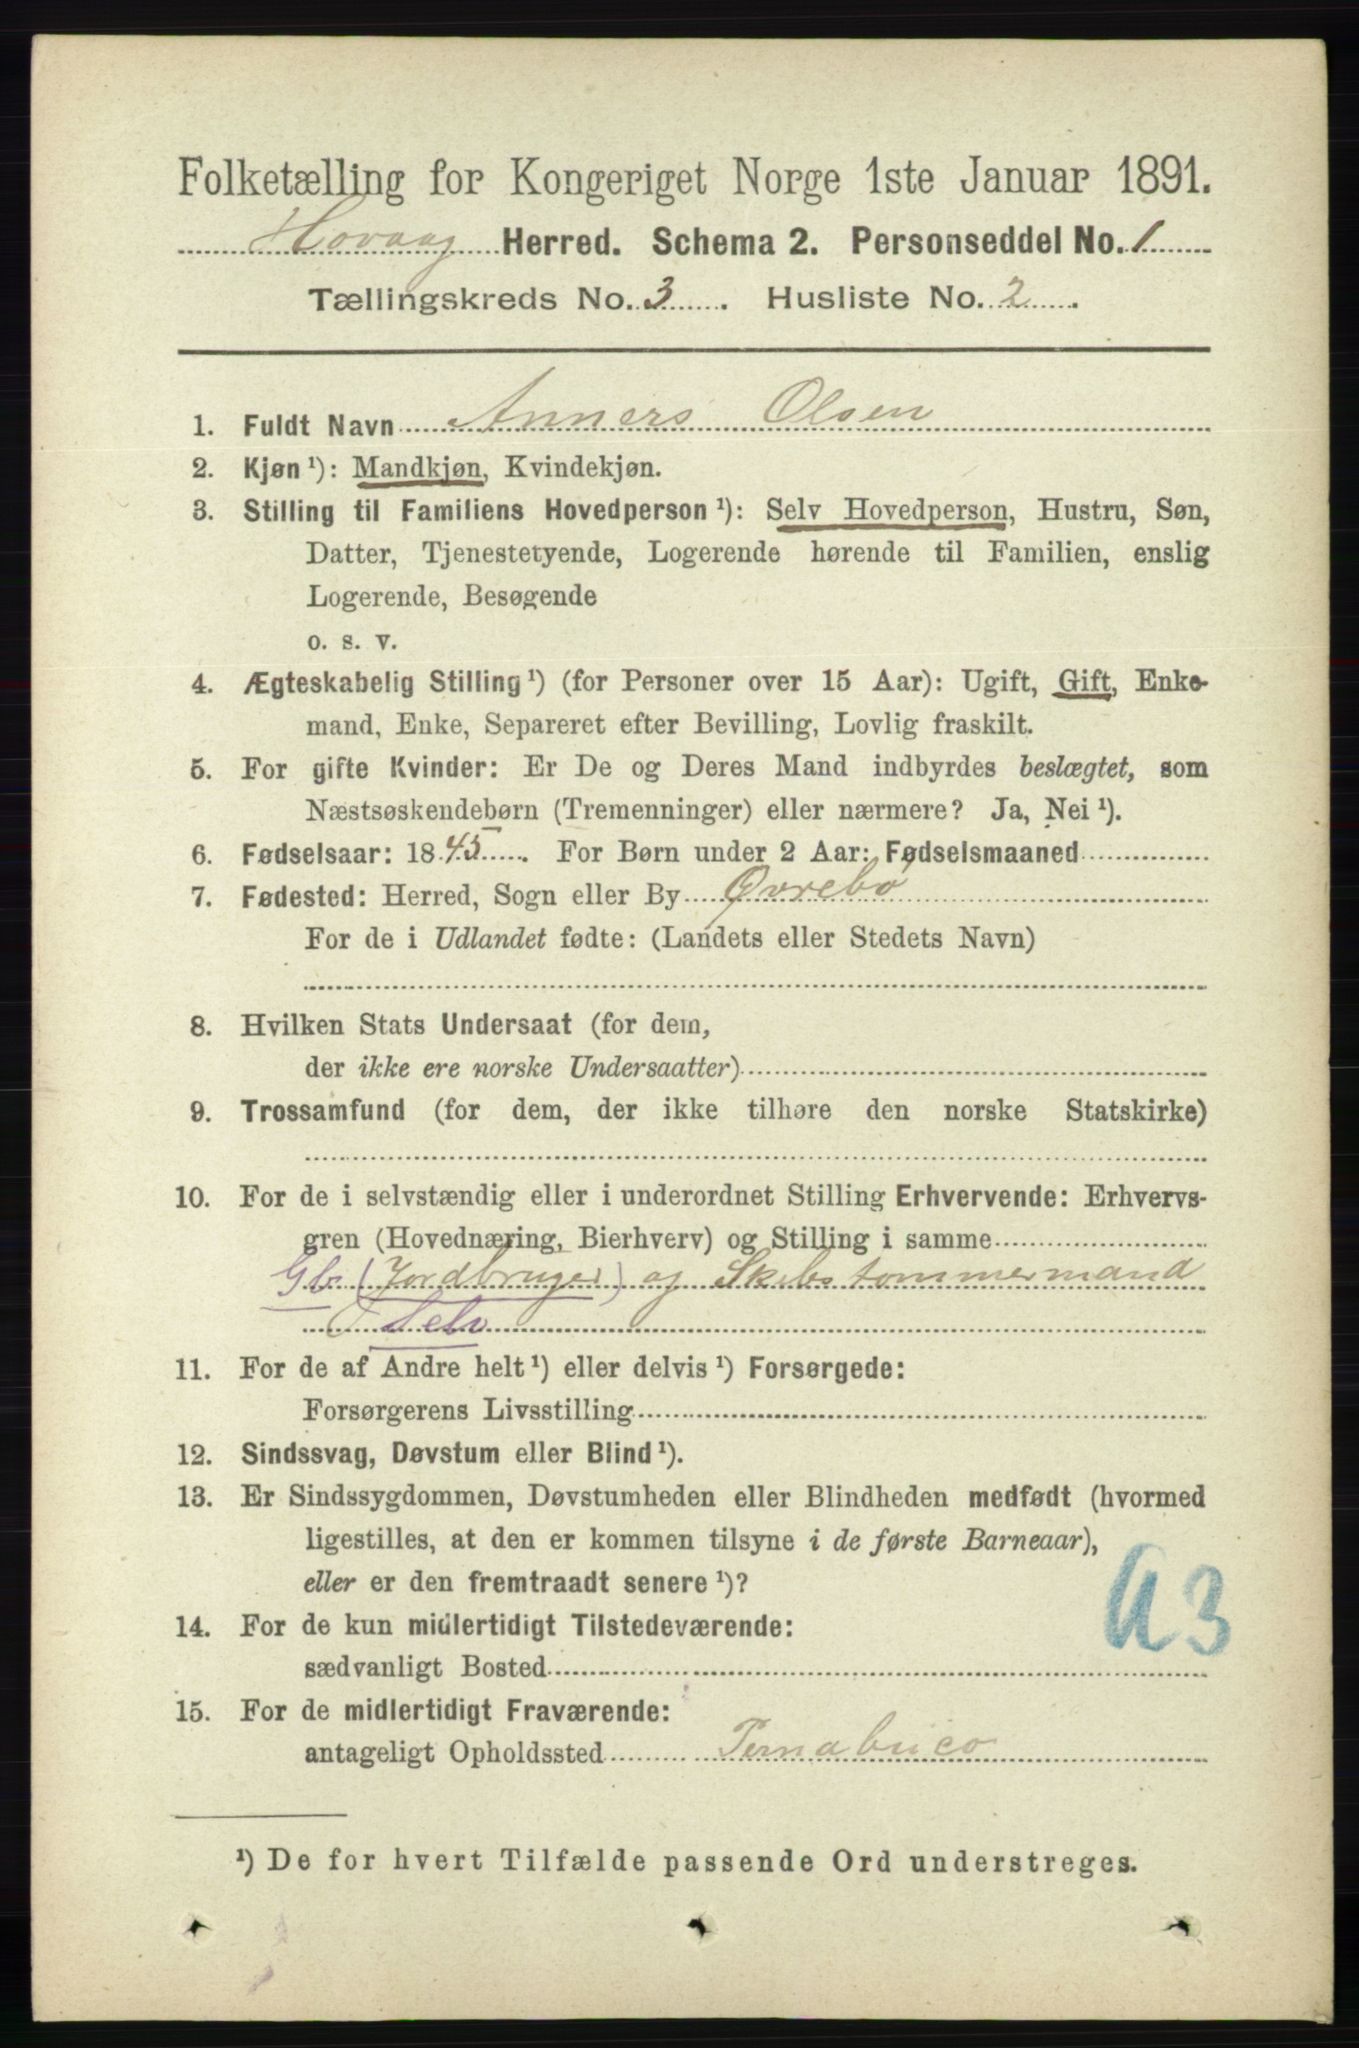 Folketælling for Kongeriget Norge 1ste Januar 1891.
Hovaag Herred. Schema 2. Personseddel No. 1
Tællingskreds No. 3. Husliste No. 2.
1. Fuldt Navn Anners Olsen
2. Kjøn ¹): Mandkjøn, Kvindekjøn.
3. Stilling til Familiens Hovedperson ¹): Selv Hovedperson, Hustru, Søn,
Datter, Tjenestetyende, Logerende hørende til Familien, enslig
Logerende, Besøgende
o. s. v.
4. Ægteskabelig Stilling ¹) (for Personer over 15 Aar): Ugift, Gift, Enke-
mand, Enke, Separeret efter Bevilling, Lovlig fraskilt.
5. For gifte Kvinder: Er De og Deres Mand indbyrdes beslægtet, som
Næstsøskendebørn (Tremenninger) eller nærmere? Ja, Nei ¹).
6. Fødselsaar: 1845. For Børn under 2 Aar: Fødselsmaaned
7. Fødested: Herred, Sogn eller By Øvrebø
For de i Udlandet fødte: (Landets eller Stedets Navn)
8. Hvilken Stats Undersaat (for dem,
der ikke ere norske Undersaatter)
9. Trossamfund (for dem, der ikke tilhøre den norske Statskirke)
10. For de i selvstændig eller i underordnet Stilling Erhvervende: Erhvervs-
gren (Hovednæring, Bierhverv) og Stilling i samme
Gb (Jordbruger) og Skibstømmermand
Selv
11. For de af Andre helt ¹) eller delvis ¹) Forsørgede:
Forsørgerens Livsstilling
12. Sindssvag, Døvstum eller Blind ¹).
13. Er Sindssygdommen, Døvstumheden eller Blindheden medfødt (hvormed
ligestilles, at den er kommen tilsyne i de første Barneaar),
eller er den fremtraadt senere ¹)?
a3
14. For de kun midlertidigt Tilstedeværende:
sædvanligt Bosted
15. For de midlertidigt Fraværende:
antageligt Opholdssted Pernabuco
¹) De for hvert Tilfælde passende Ord understreges.